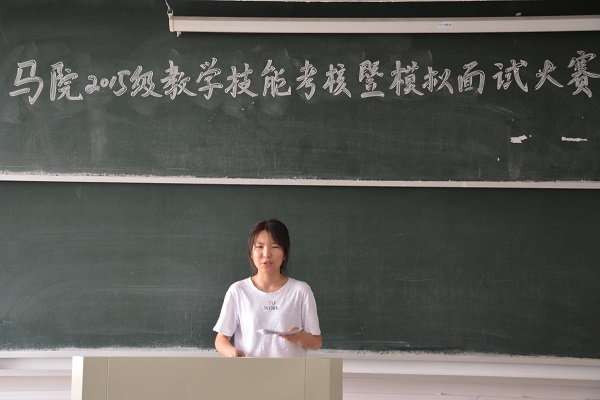 马院2015级教学技能考核暨模拟面试大赛
TO
WORK